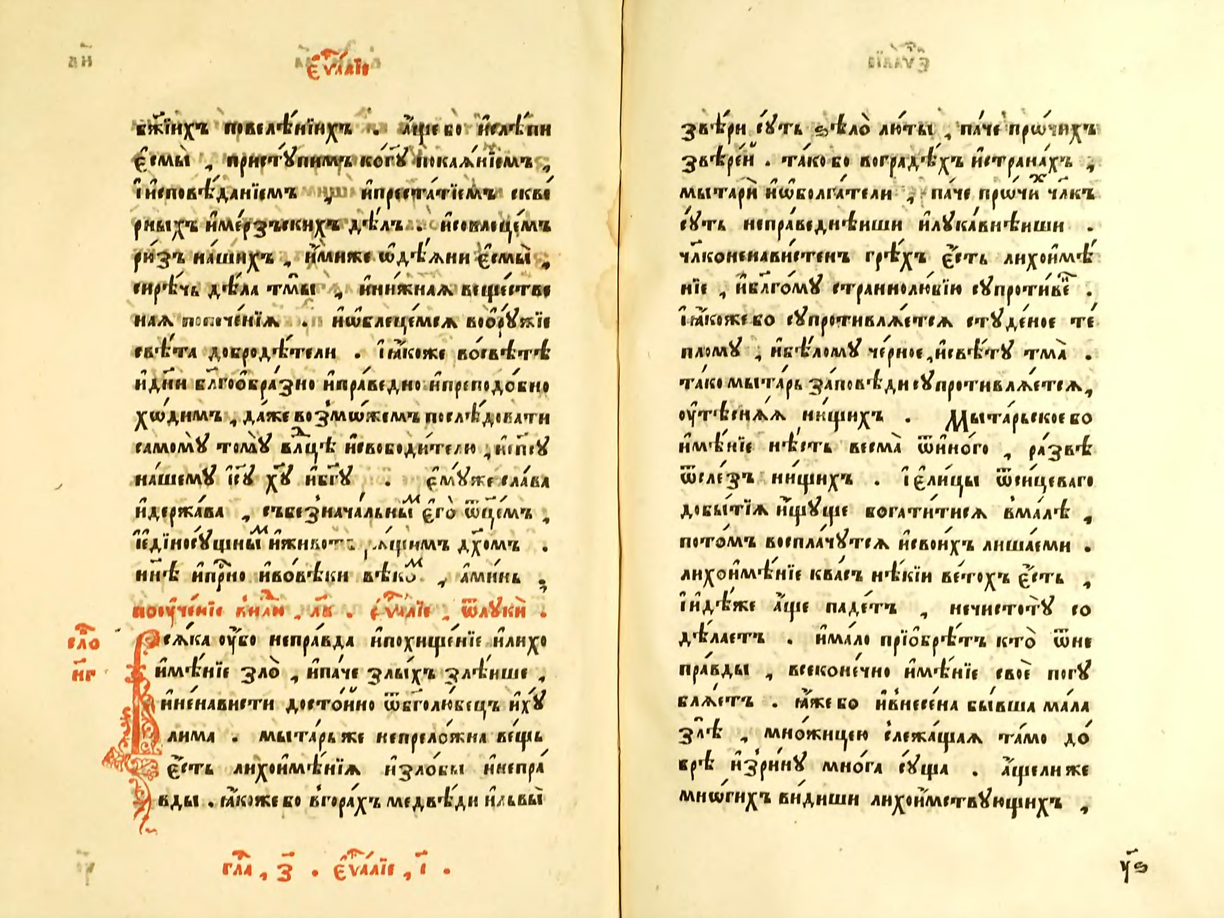 Єѵⷢ҇аліе
бж҃їихъ повелѣнїихъ . а҆ще бо и҆слѣпи
є҆смы̀ , пристꙋпимъ къ бг҃ꙋ покаѧ́нїемъ ,
і҆и҆сповѣ́данїемъ , и҆преста́тїемъ скве
рныхъ и҆мерзъскихъ дѣ́лъ . и҆совлеце́мъ
ри́зъ на́шихъ , и҆́миже ѡ҆дѣѧни є҆смы̀ ,
сирѣ́чь дѣ́ла тмы̀ , и҆ни́жнаѧ веществе
наѧ попече́нїѧ . и҆ѡ҆блеце́мсѧ воѻрꙋ́жїе
свѣ́та добродѣ́тели . і҆ꙗ҆́коже восвѣ́тѣ
и҆дн҃и бл҃гоѻбра́зно и҆пра́ведно и҆преподо́бно
хѡ́димъ , да́же возмо́жемъ послѣ́довати
самомꙋ̀ томꙋ̀ влⷣцѣ и҆свободи́телю , и҆сп҃сꙋ
на́шемꙋ і҆с҃ꙋ хⷭ҇ꙋ и҆бг҃ꙋ . є҆мꙋ́же сла́ва
и҆держа́ва , събезнача́льныⷨ є҆гѡ̀ ѿц҃емъ ,
і҆є҆дїносꙋ́щныⷨ и҆животворѧ́щимъ дх҃омъ .
нн҃ѣ и҆прⷭ҇но и҆вовѣ́ки вѣкоⷨ , а҆ми́нь .
поꙋче́нїе внⷣлю , л҃в . є҆ѵⷢ҇аліе , ѿлꙋкѝ .
сло
н҃г
Всѧ́ка ᲂу҆́бо непра́вда и҆похище́нїе и҆лихо
и҆мѣ́нїе ѕло̀ , и҆па́че ѕлы́хъ ѕлѣ́йше ,
и҆не́нависти досто́йно ѿбг҃олю́бецъ и҆хꙋ
лима . мы́тарьже непрело́жна ве́щь
є҆́сть лихои҆мѣ́нїѧ и҆ѕло́бы и҆непра́
вды . ꙗ҆́коже бо вгора́хъ медвѣ́ди и҆львы̀
гл҃а , з҃ . є҆ѵⷢ҇аліе , і҃ .
ѕвѣ́ри сꙋ́ть ѕѣло̀ лю́ты , па́че про́чихъ
ѕвѣре́й . та́ко бо воградѣ́хъ и҆страна́хъ ,
мытарѝ и҆ѡ҆болга́тели , па́че про́чиⷯ чл҃къ
сꙋ́ть непра́веднѣйши и҆лꙋка́внѣйши .
чл҃коненави́стенъ грѣ́хъ є҆́сть лихои҆мѣ́
нїе , и҆бл҃го́мꙋ страннолю́бїю сꙋпроти́вⷩ҇е .
і҆ꙗ҆́коже бо сꙋпротивлѧ́етсѧ стꙋде́ное те́
пломꙋ , и҆бѣ́ломꙋ че́рное , и҆свѣ́тꙋ тма̀ .
та́ко мы́тарь за́повѣди сꙋпротивлѧ́етсѧ ,
ᲂу҆тѣснѧ́ѧ ни́щихъ . Мы́тарьское бо
и҆мѣ́нїе нѣ́сть весма̀ ѿи҆но́го , ра́звѣ
ѿсле́зъ ни́щихъ . і҆є҆ли́цы ѿси́цеваго
добы́тїѧ и҆́щꙋще богати́тисѧ вма́лѣ ,
пото́мъ воспла́чꙋтсѧ и҆свои́хъ лиша́еми .
лихои҆мѣ́нїе ква́съ нѣ́кїи ве́тохъ є҆́сть ,
і҆и҆дѣ́же а҆́ще паде́тъ , нечистотꙋ̀ со
дѣ́лаетъ . и҆ма́ло прїѻбрѣ́тъ кто̀ ѿне
пра́вды , всеконе́чно и҆мѣ́нїе своѐ погꙋ
блѧ́етъ . ꙗ҆́же бо и҆внесе́на бы́вша мала
ѕлѣ̀ , мно́жицею слежа́щаѧ та́мо до́
брѣ и҆зри́нꙋ мно́га сꙋ́ща . а҆́щелиже
мнѡ́гихъ ви́диши лихои҆́мствꙋющихъ ,
ч҃ѕ